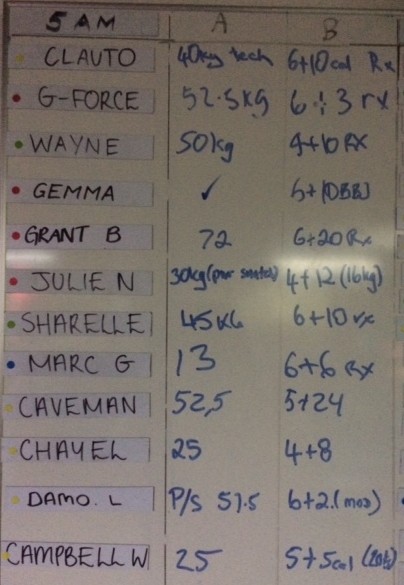 5 AM A B
CLAUTO 40kg tech 6+10cal Rx
G-FORCE 52.5KG 6 + 3 rx
WAYNE 50kg 4+10 RX
GEMMA ✓ 5+10BBJ
GRANT B 72 6+20 Rx
JULIE N 30kg (pwr snatch) 4+12 (16kg)
SHARELLE 45KG 6+10 rx
MARC G 13 6+6 Rx
CAVEMAN 52,5 5+24
CHAYEL 25 4+8
DAMO. L P/S 57.5 6+2.(mod)
CAMPBELL W 25 5+5cal